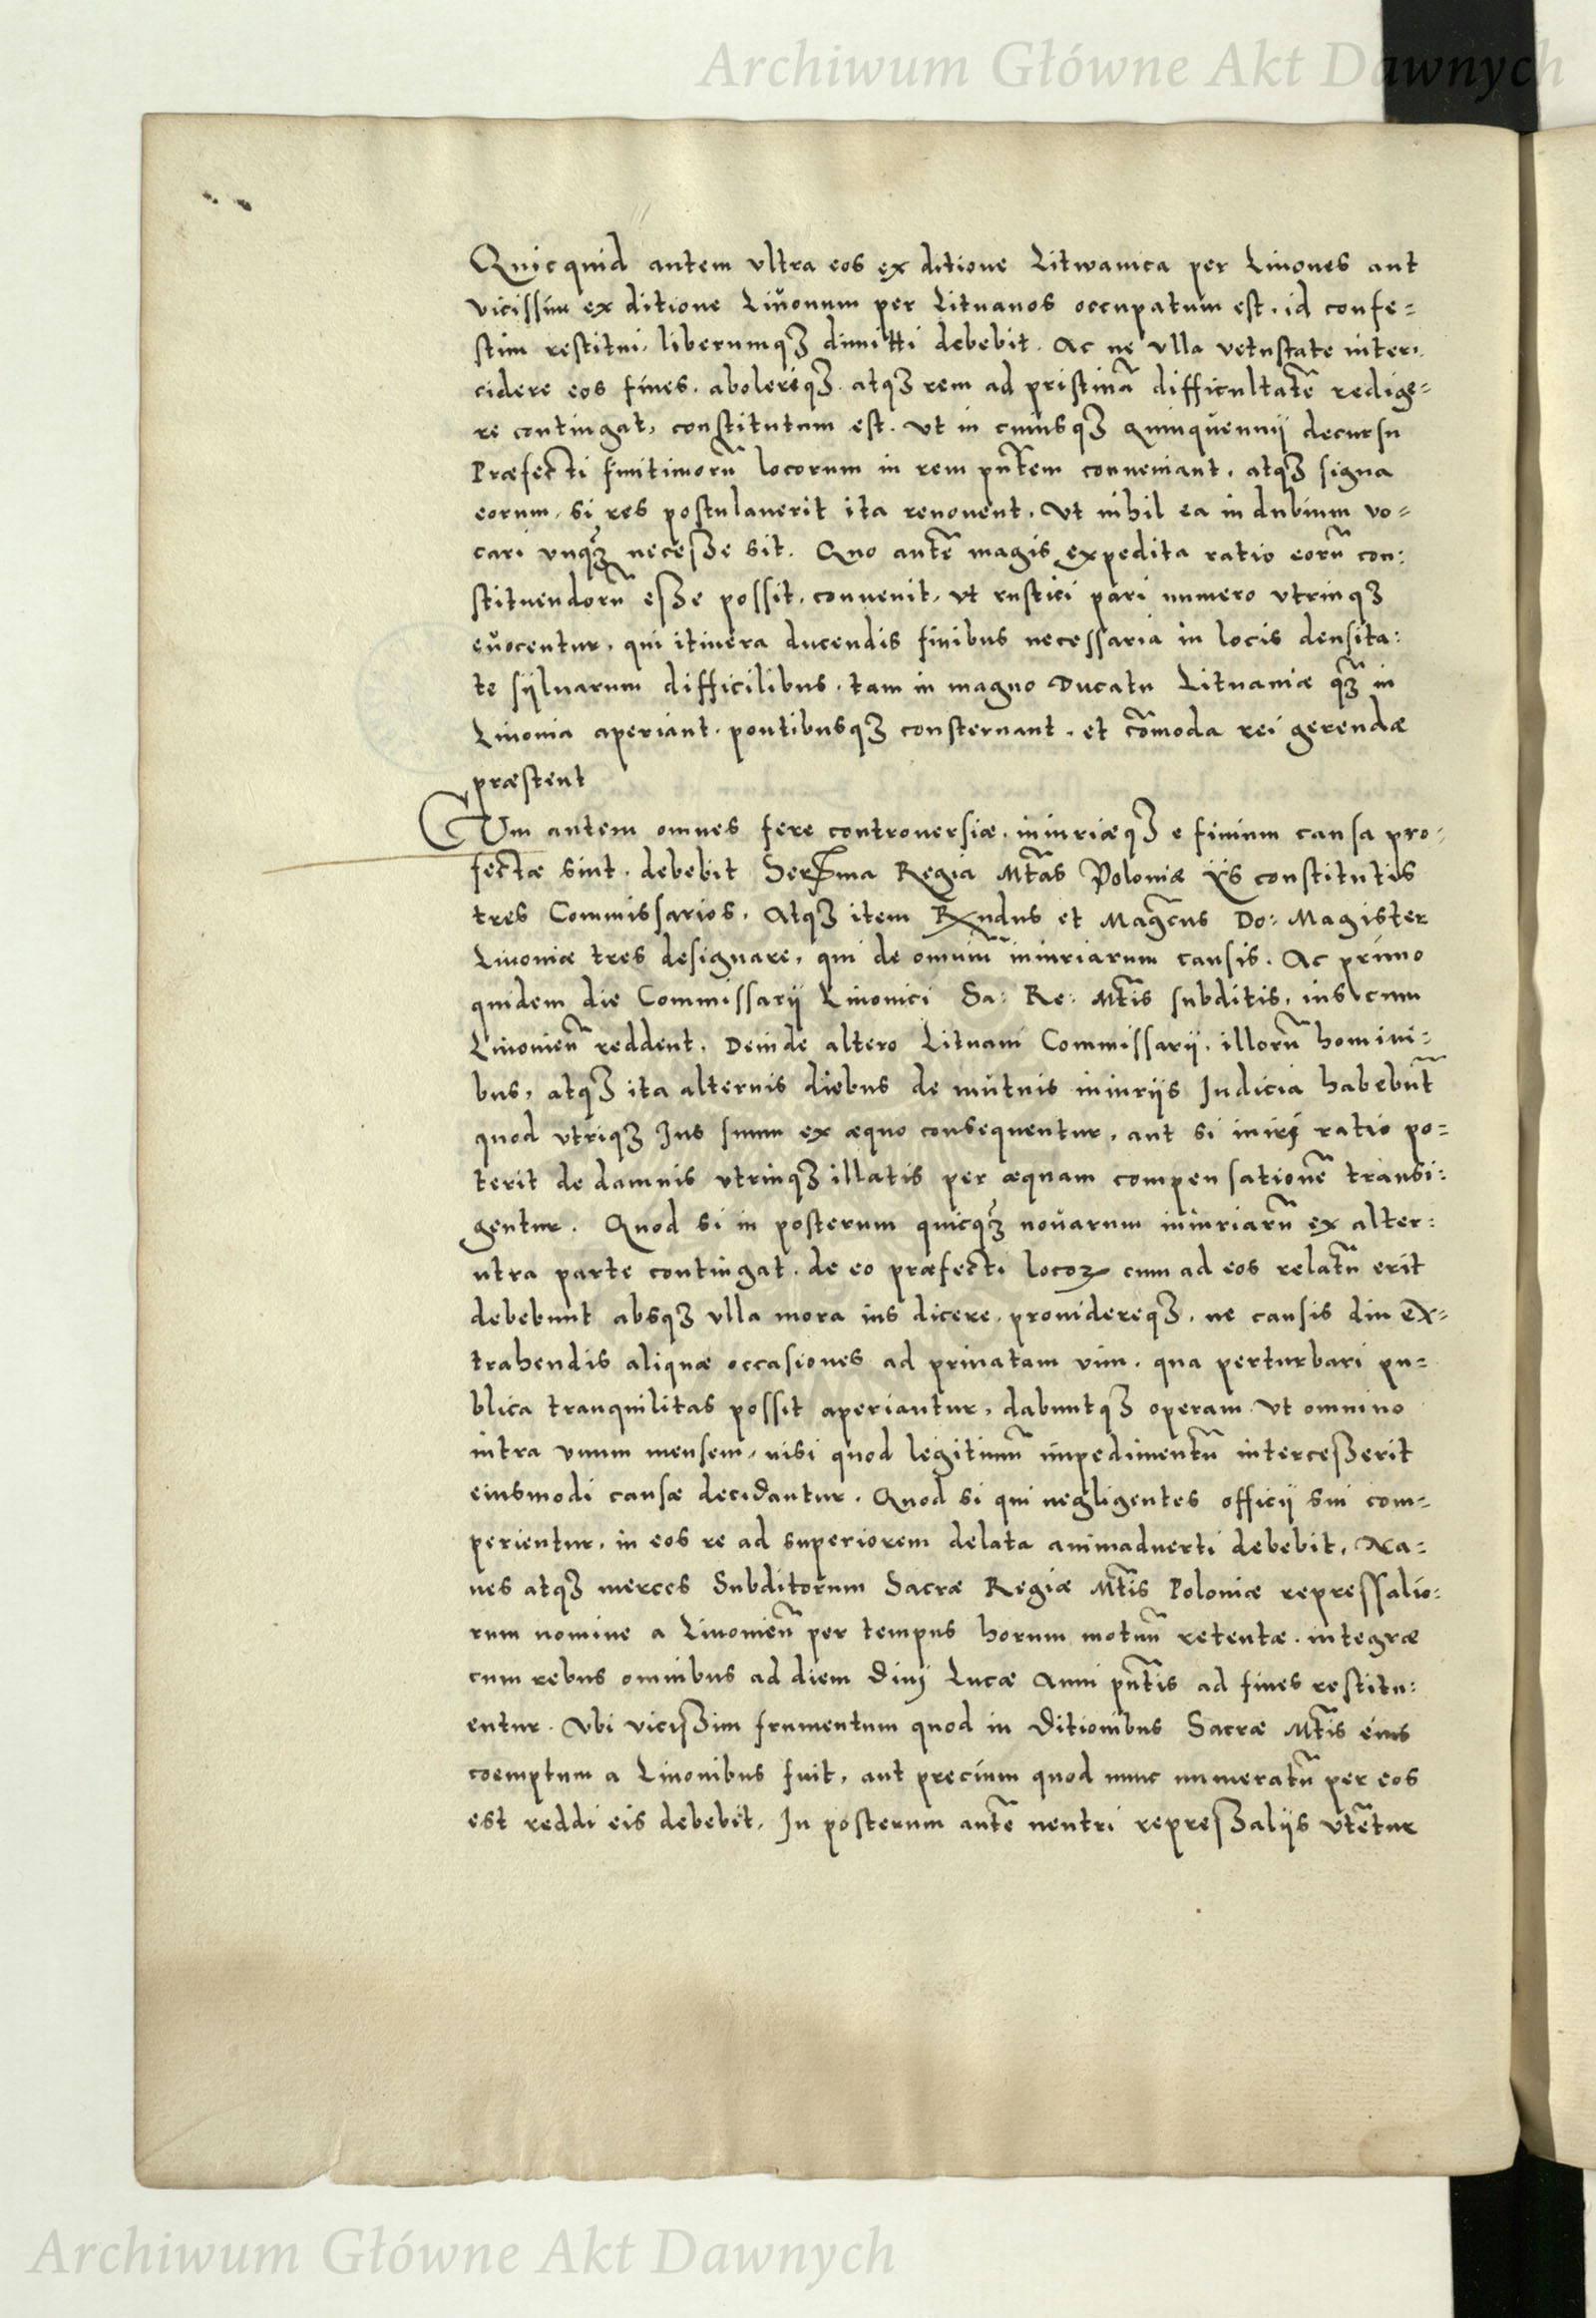 Archiwum Główne Akt Dawnych
Quicquid autem vltra eos ex ditione Litwanica per Liuones aut
vicissim ex ditione Liuonum per Lituanos occupatum est, id confe=
stim restitui, liberumqꝫ dimitti debebit. Ac ne vlla vetustate inter,
cidere eos fines, aboleriqꝫ, atqꝫ rem ad pristinā difficultatē redige=
re contingat, constitutum est. Vt in cuiusqꝫ quinquennij decursu
Præfecti finitimorū locorum in rem pn̄tem conueniant, atqꝫ signa
eorum, si res postulauerit ita renouent, Vt nihil ea in dubium vo=
cari vnqꝫ̄ necesse sit. Quo autē magis expedita ratio eorū con:
stituendorū esse possit, conuenit, vt rustici pari numero vtrinqꝫ
euocentur, qui itinera ducendis finibus necessaria in locis densita:
te syluarum difficilibus, tam in magno Ducatu Lituaniæ qꝫ̄ in
Liuonia aperiant, pontibusqꝫ consternant, et cōmoda rei gerendæ
præstent
Cum autem omnes fere controuersiæ, iniuriæqꝫ e finium causa pro=
fectæ sint, debebit Serssma Regia Mtās Poloniæ ijs constitutis
tres Commissarios, Atqꝫ item Rndus et Magcūs Do: Magister
Liuoniæ tres designare, qui de omniū iniuriarum causis. Ac primo
quidem die Commissarij Liuonici Sa: Re: Mtīs subditis, ius cum
Liuonien̄ reddent, Deinde altero Lituani Commissarij, illorū homini=
bus, atqꝫ ita alternis diebus de mutuis iniurijs Iudicia habebūt
quod vtriqꝫ Ius suum ex æquo consequentur, aut si iniri ratio po=
terit de damnis vtrinqꝫ illatis per æquam compensationē transi:
gentur. Quod si in posterum quicqꝫ̄ nouarum iniuriarū ex alter:
utra parte contingat, de eo præfecti locoꝝ cum ad eos relatū erit
debebunt absqꝫ vlla mora ius dicere, prouidereqꝫ, ne causis diu ex=
trahendis aliquæ occasiones ad priuatam vim, qua perturbari pu=
blica tranquilitas possit aperiantur, dabuntqꝫ operam Vt omnino
intra vnum mensem, nisi quod legitimū impedimentū intercesserit
eiusmodi causæ decidantur. Quod si qui negligentes officij sui com=
perientur, in eos re ad superiorem delata animaduerti debebit, Na=
ues atqꝫ merces Subditorum Sacræ Regiæ Mtīs Poloniæ repressalio:
rum nomine a Liuonien̄ per tempus horum motuū retentæ, integræ
cum rebus omnibus ad diem Diui Lucæ Anni pn̄tis ad fines restitu:
entur. Vbi vicissim frumentum quod in Ditionibus Sacræ Mtīs eius
coemptum a Liuonibus fuit, aut precium quod nunc numeratū per eos
est reddi eis debebit. In posterum autē neutri repressalijs vtētur
Archiwum Główne Akt Dawnych